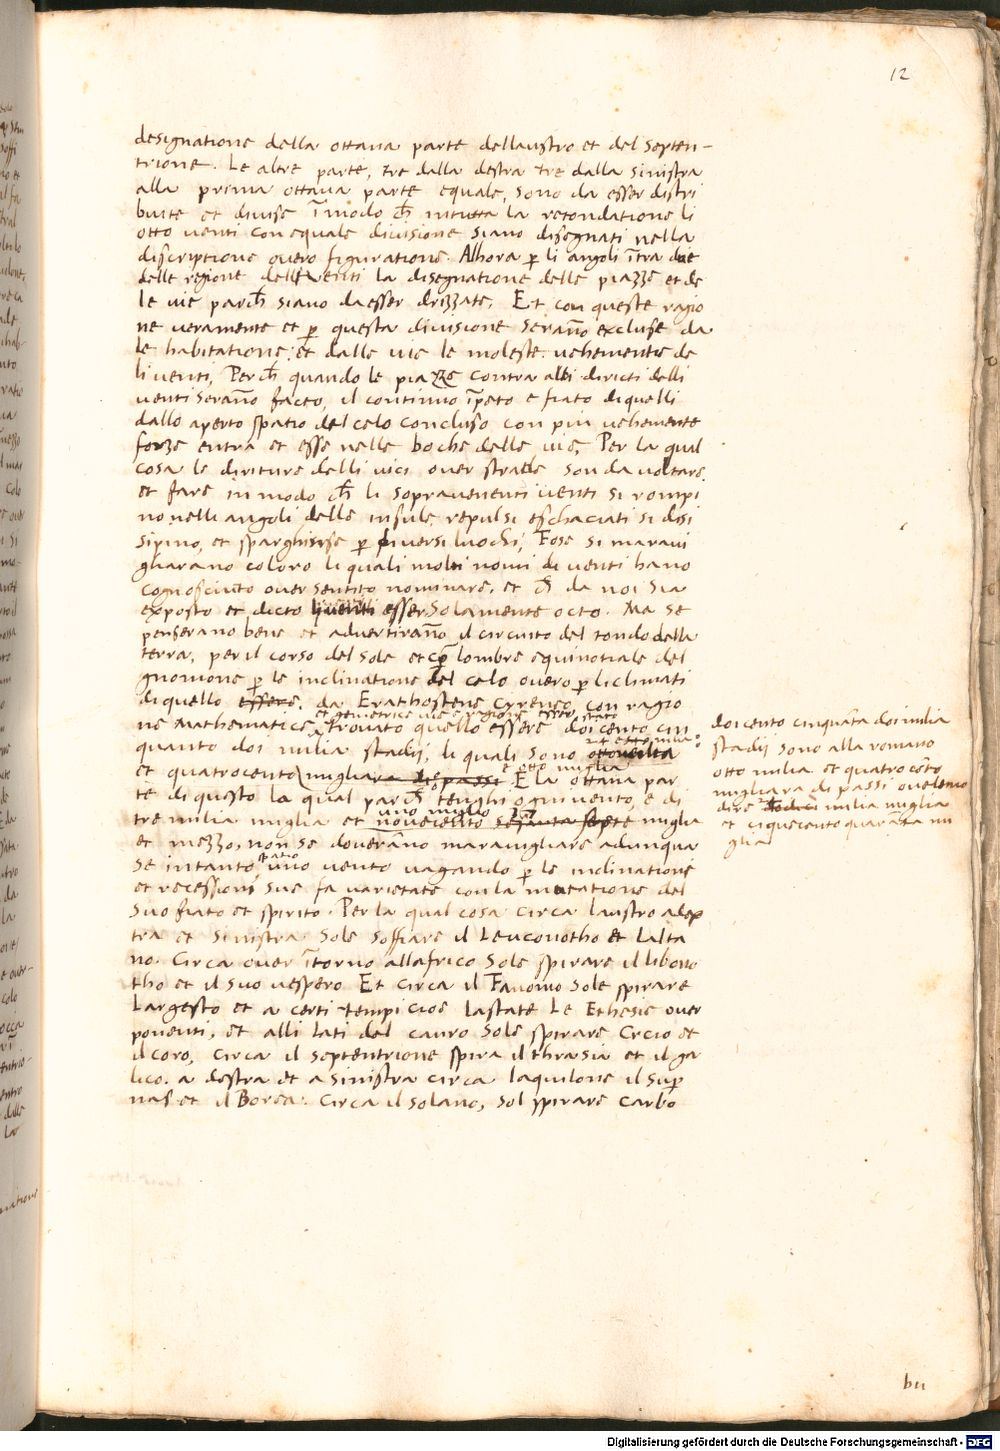 12
designatione della ottava parte dellaustro et del Septen-
trione. Le altre parte, tre dalla destra tre dalla Sinistra
alla prima ottava parte equale, Sono da esser distri
buite et divise ī modo ch̄ in tutta la retondatione li
otto venti con equale divisione Siano disegnati nella
discriptione overo figuratione. Alhora p̱ li angoli ītra due
delle regione delli venti la disegnatione delle piazze et de
le vie parch̄ siano da esser drizzate. Et con queste ragio
ne veramente et p̱ questa divisione Serano excluse da
le habitatione, et dalle vie le moleste vehemente de
li venti, Perch̄ quando le piazze contra alli diricti delli
venti Serano facte, il continuo īpeto e fiato di quelli
dallo aperto spatio del celo concluso con piu vehemente
forze entra et esse nelle boche delle vie, Per la qual
cosa le diriture delli vici over strade son da voltare.
et fare in modo ch̄ li Sopravenenti venti si rompi
no nelli angoli delle insule repulsi eschaciati si disi
sipino, et sparghisise p̱ diversi luochi, Fose Si maravi
gliarano coloro li quali molti nomi di venti hano
cognosciuto over Sentito nominare, et ch̄ da noi sia
exposto et dicto li venti esser Solamente octo. Ma se
penserano bene et advertirano il circuito del tondo della
terra, per il corso del Sole et p̱ lombre equinotiale del
gnomone p̱ le inclinatione del celo overo p̱ li climati
di quello essere. da Erathostene Cyreneo con ragio
et geometrice vie e ragione esser stato
ne Mathematice trovato quello essere doi cento cin
quanto doi milia stadij, li quali Sono
et quatrocento migliara di passi E la ottava par
e otto miglia
te di questo la qual parch̄ tenghi ogni vento, e di
tre milia miglia et novecento sesanta septe miglia
et mezzo, non se doverano maravigliare adunqua
Se intanto spatio uno vento vagando p̱ le inclinatione
et recessioni sue fa varietate con la mutatione del
Suo fiato et spirito. Per la qual cosa circa laustro a dex
tra et Sinistra Sole Soffiare il Leuconotho et Lalta
no. Circa over ītorno allafrico Sole spirare il libono
tho et il suo vespero Et circa il Favonio Sole spirare
Largesto et a certi tempi cioe lastate Le Ethesie over
ponenti, et alli lati del cauro Sole spirare Crcio et
il coro, Circa il Septentrione spira il thrasia et il ga
lico. a destra et a Sinistra circa laquilone il Sup̱
nas et il Borea. Circa il Solano, Sol spirare Carbo
doi cento cinquāta doi milia
stadij Sono alla romano
otto milia et quatro cēto
migliara di passi ove
dire milia miglia
et ciquecento quarāta mi
glia
bii
Digitalisierung gefördert durch die Deutsche Forschungsgemeinschaft - DFG